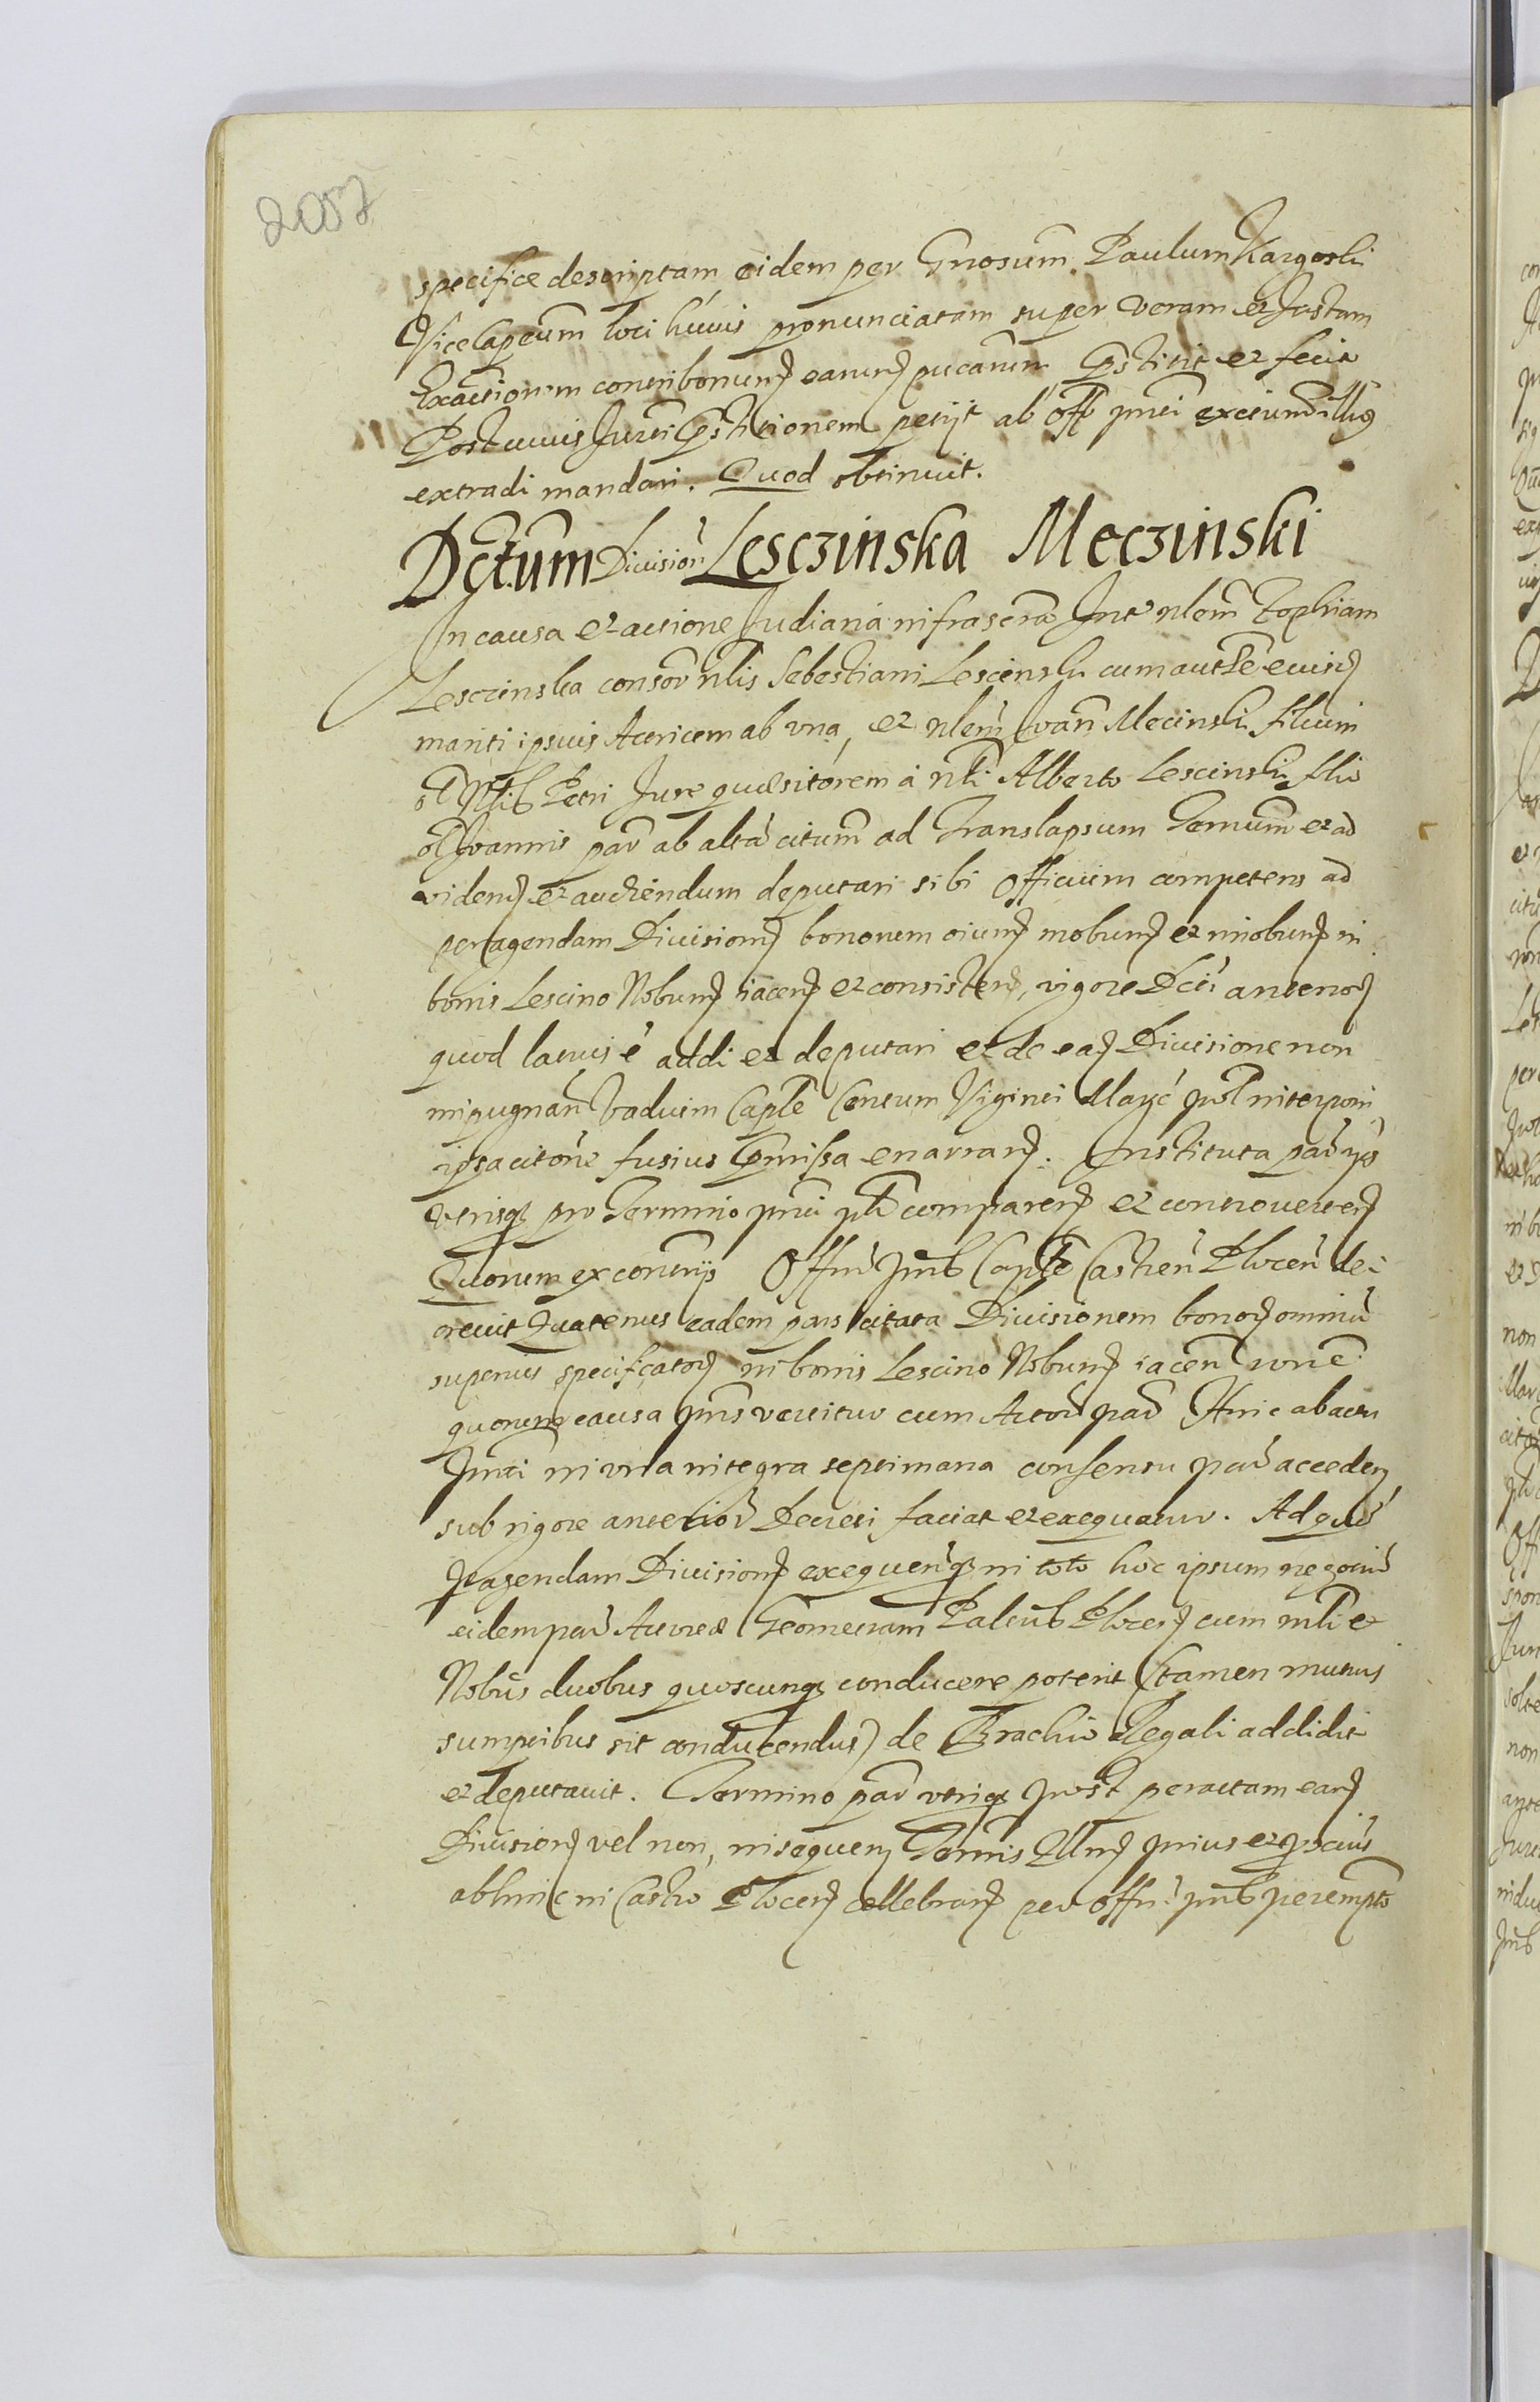 2057
specifice descriptam eidem per Gnosum Paulum Kargoski
ViceCapeum loci huius pronunciatam super veram et Justam
Exactionem contribonum earum pecarum pstitit et fecit
Post cuius Jurti pstitionem petijt ab Offo pnti
extradi mandari. Quod obtinuit.
Dctum Division Lesczinska Meczinski
In causa et actione Judiaria infrascra Int nlem Zophiam
Lesczinska consor nlis Sebestiani Lescinski cum autte euisd
mariti ipsius Actricem ab vna, et nlem Joan Mecinski filium
ol Nlis Petri Jure quæsitorem a nli Alberto Lescinski filio
ol Joannis par ab alta citum ad Translapsum Termum et ad
vidend et audiendum deputari sibi Officium competens ad
peragendam Division bonorum oium mobum et imobum in
bonis Lescino Nobum iacen et consisten, vigore Dcti anterior
quod latius e addi et deputari et de ead Divisione non
impugnan Vadium Caple Centum Viginti Marc pol interponi
ipsa citone fusius pmissa enarran. Instituta par ips
vtrisq pro Termino pnti pli comparen et controuerten
Quorum ex conterijs Offm pns Caple Castren Plocen de-
creuit Quatenus eadem pars citata Divisionem bonor omniu
superius specificator in bonis Lescino Nobum iacen rone
quorum causa pns vertitur cum Actor par Hinc ab actu
pnti in vna integra septimana consensu par acceden
sub rigore anterior Decreti faciat et exequatur. Ad qua
pagendam Division exequenq in toto hoc ipsum negotiu
eidem par Actorea Geometram Palcus Plocen cum mli et
Nobus duobus quoscunq conducere poterit (tamen mutuis
sumptibus sit conducendus) de Brachio Regali addidit
et deputauit. Termino par vtriq post peractam eand
Division vel non, in sequen Termis Qllm prius et pxius
abhinc in Castro Plocen cellebran per Offm pns perempto